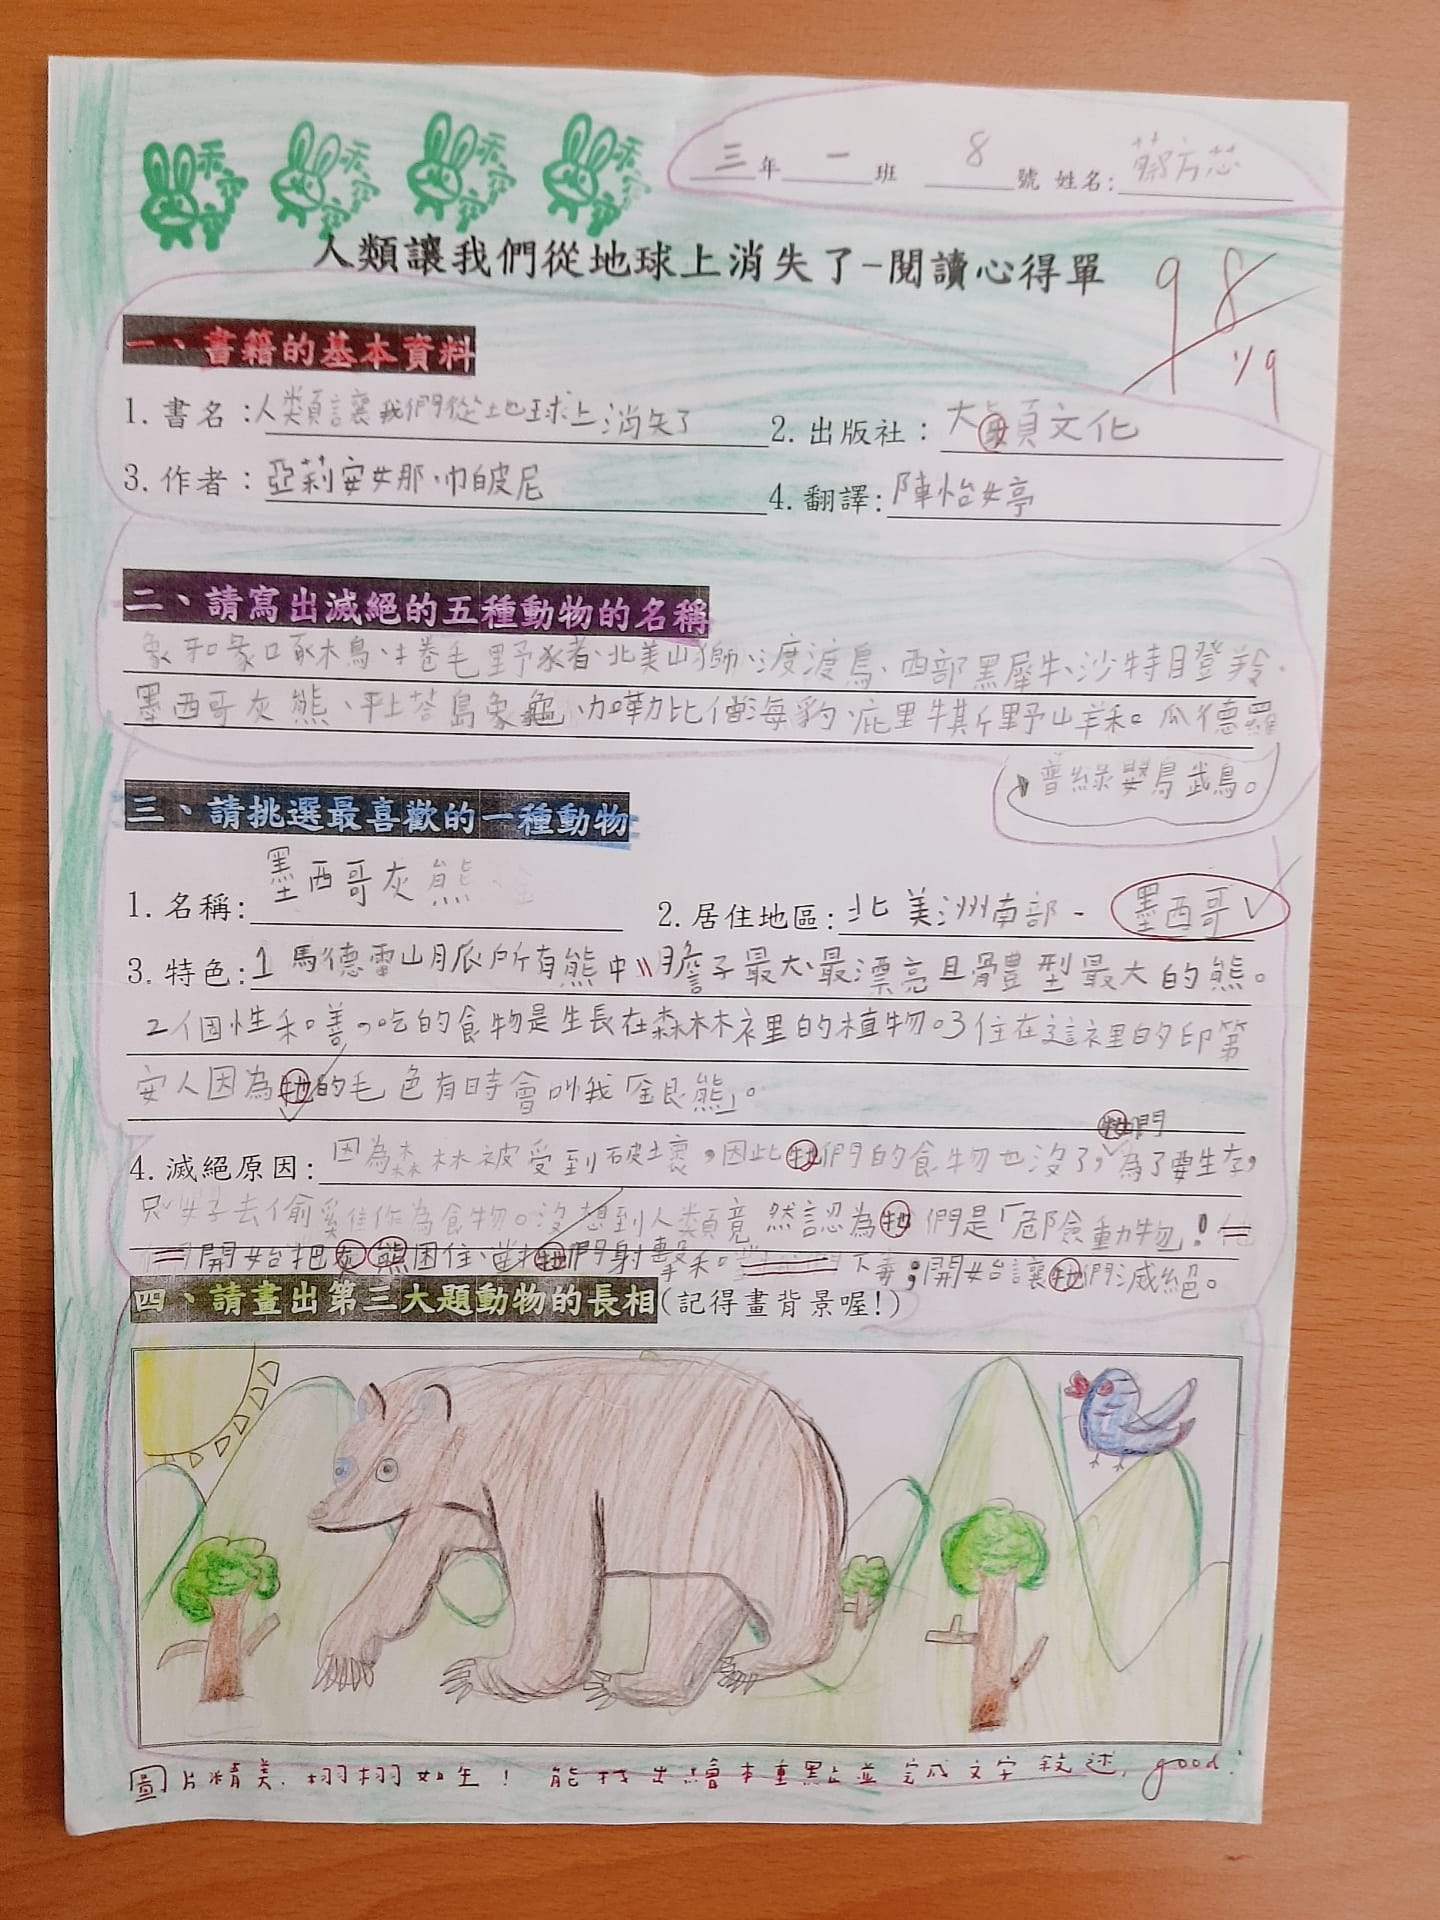 乖 乖 乖 乖
三年 一 班 8 號 姓名: 蔡方芯
人類讓我們從地球上消失了-閱讀心得單
98
1/9
一、書籍的基本資料
1. 書名:人類讓我們從地球上消失了 2. 出版社:大穎文化
3. 作者:亞莉安娜那·帕皮尼 4. 翻譯:陳怡婷
二、請寫出滅絕的五種動物的名稱
象牙喙啄木鳥、卷毛野豬、北美山獅、渡渡鳥、西部黑犀牛、沙特目登羚、
墨西哥灰熊、平塔島象龜、加勒比僧海豹、庇里牛斯野山羊和瓜德羅
普綠鸚鵡。
三、請挑選最喜歡的一種動物
1. 名稱:墨西哥灰熊 2. 居住地區:北美洲南部-墨西哥
3. 特色:1 馬德雷山脈所有熊中膽子最大、最漂亮且體型最大的熊。
2個性和善,吃的食物是生長在森林裡的植物。3住在這裡的印第
安人因為牠的毛色有時會叫我「銀熊」。
4. 滅絕原因:因為森林被受到破壞,因此牠們的食物也沒了,牠們為了要生存,
只好去偷雞隻作為食物。沒想到人類竟然認為牠們是「危險動物!
開始把灰熊困住、對牠們射擊和下毒;開始讓牠們滅絕。
四、請畫出第三大題動物的長相(記得畫背景喔!)
圖片精美,栩栩如生!能找出繪本重點並完成文字敘述,good!